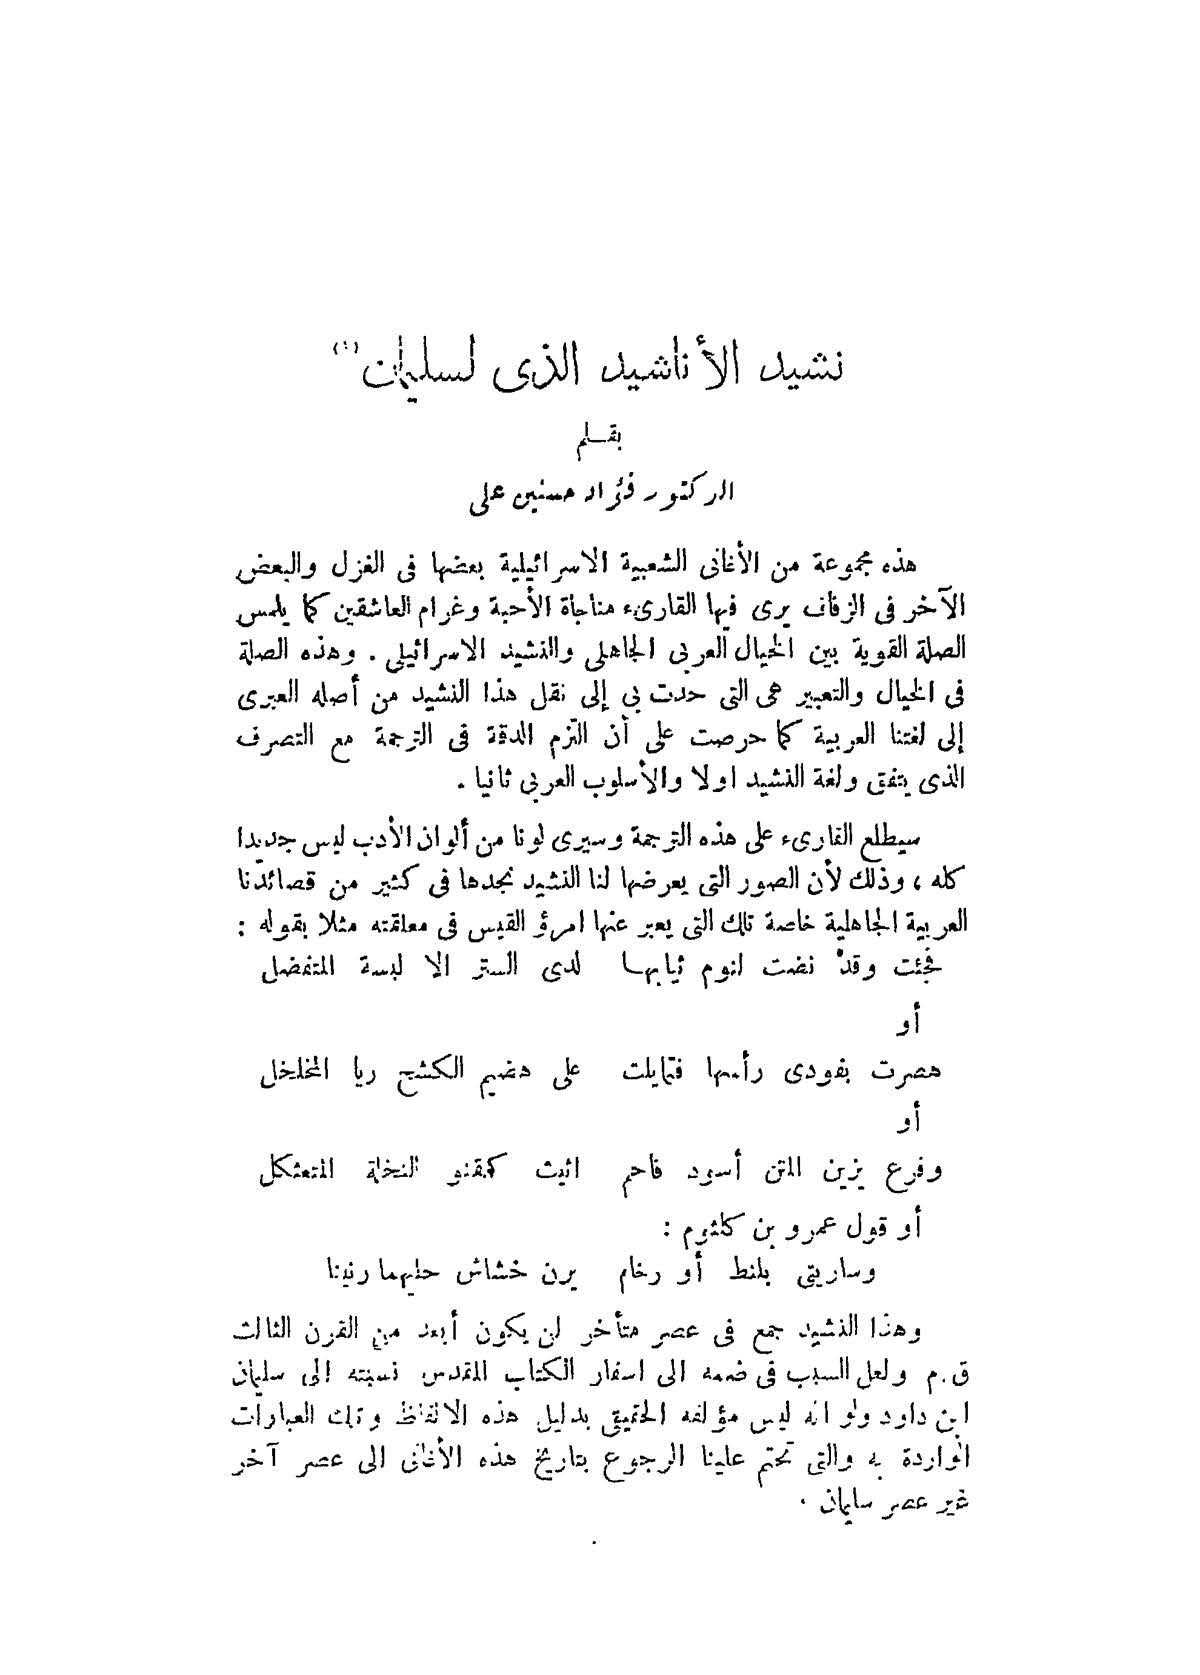 نشيد الأناشيد الذى لسليمان (١)
بقلم
الدكتور فؤاد حسنين على
هذه مجموعة من الأغانى الشعبية الاسرائيلية بعضها فى الغزل والبعض
الآخر فى الزفاف يرى فيها القارىء مناجاة الأحبة وغرام العاشقين كما يلمس
الصلة القوية بين الخيال العربى الجاهلى والنشيد الاسرائيلى . وهذه الصلة
فى الخيال والتعبير هى التى حدت بى إلى نقل هذا النشيد من أصله العبرى
إلى لغتنا العربية كما حرصت على أن التزم الدقة فى الترجمة مع التصرف
الذى يتفق ولغة النشيد اولا والأسلوب العربى ثانيا .
سيطلع القارىء على هذه الترجمة وسيرى لونا من ألوان الأدب ليس جديدا
كله ، وذلك لأن الصور التى يعرضها لنا النشيد نجدها فى كثير من قصائدنا
العربية الجاهلية خاصة تلك التى يعبر عنها امرؤ القيس فى معلقته مثلا بقوله :
فجئت وقد نضت لنوم ثيابها لدى الستر الا لبسة المتفضل
أو
هصرت بفودى رأسها فتمايلت على هضيم الكشح ريا المخلخل
أو
وفرع يزين المتن أسود فاحم اثيث كقنو النخلة المتعثكل
أو قول عمرو بن كلثوم :
وساريتى بلنط أو رخام يرن خشاش حليهما رنينا
وهذا النشيد جمع فى عصر متأخر لن يكون أبعد من القرن الثالث
ق.م ولعل السبب فى ضمه الى اسفار الكتاب المقدس نسبته الى سليمان
ابن داود ولو انه ليس مؤلفه الحقيقى بدليل هذه الالفاظ وتلك العبارات
الواردة به والتى تحتم علينا الرجوع بتاريخ هذه الأغانى الى عصر آخر
غير عصر سليمان .